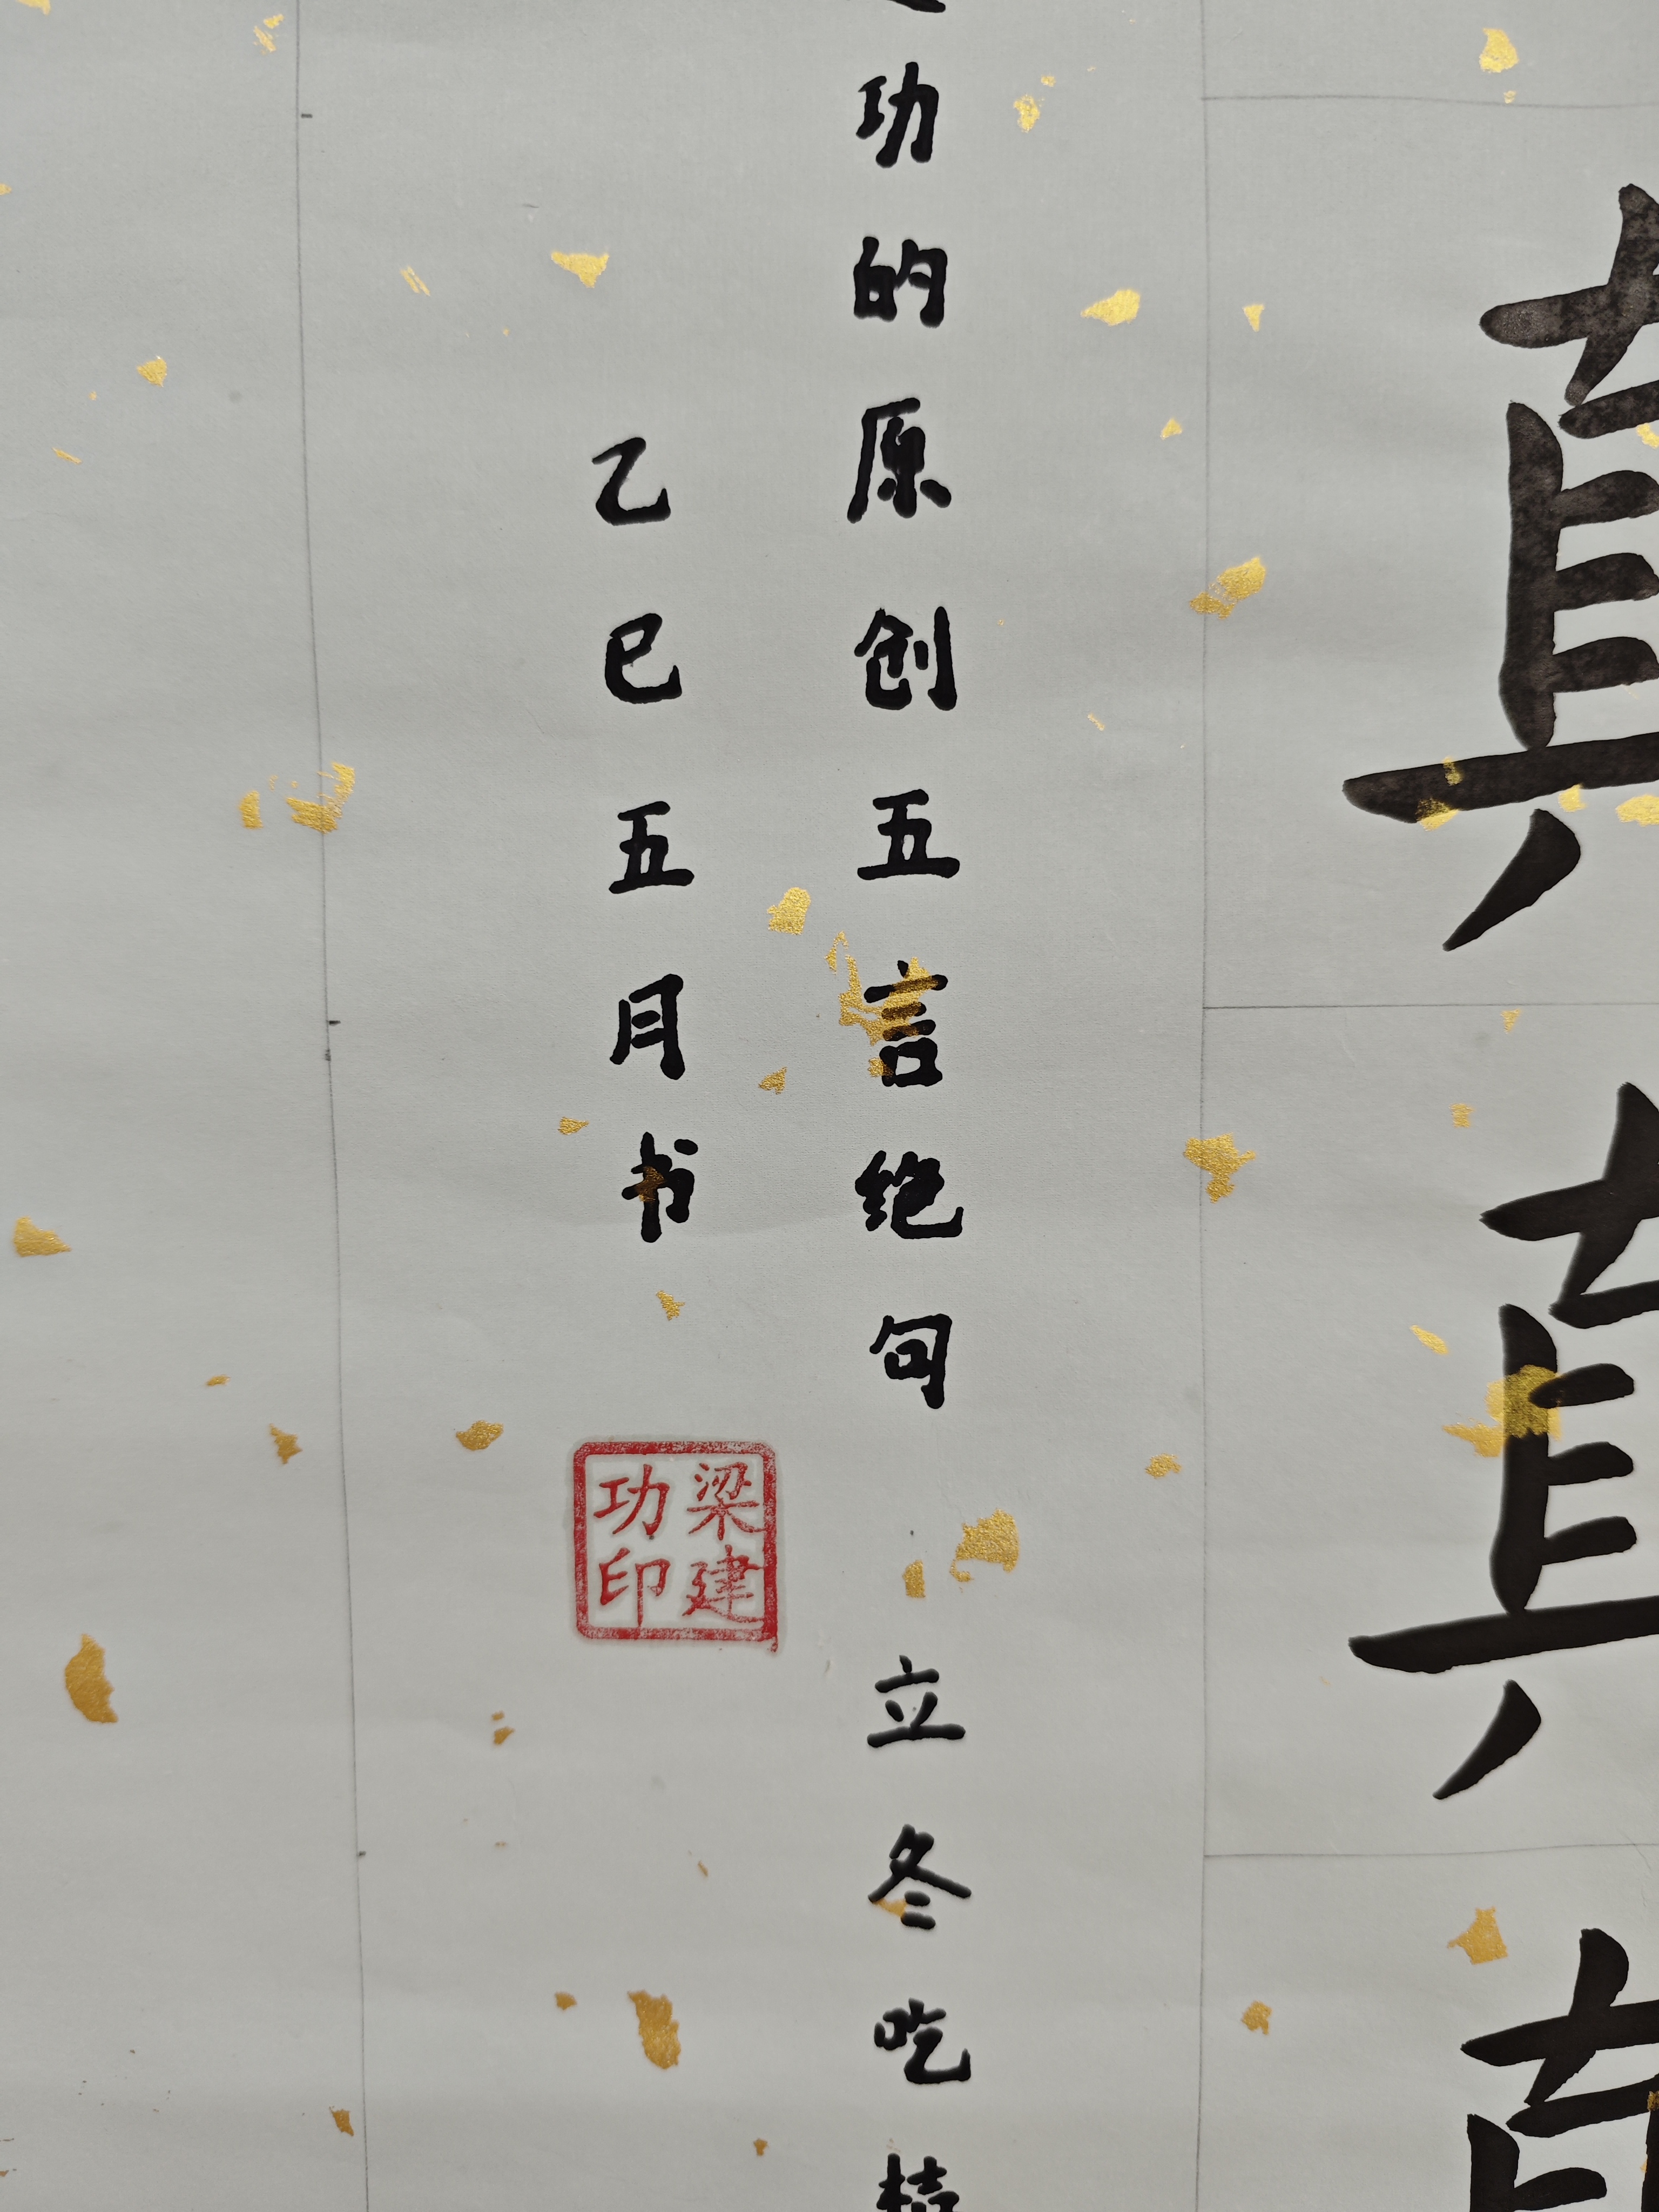 真真真
功的原创五言绝句 立冬吃桔
乙巳五月书
梁建功印